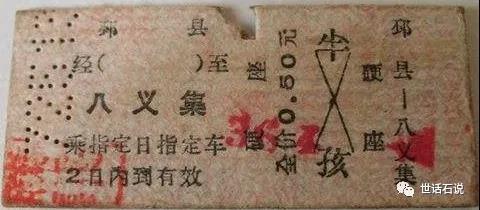 邳县
经( )至
八义集
乘指定日指定车
2日内到有效
硬座
全价0.50元
半
孩
硬座
邳县—八义集
世话石说